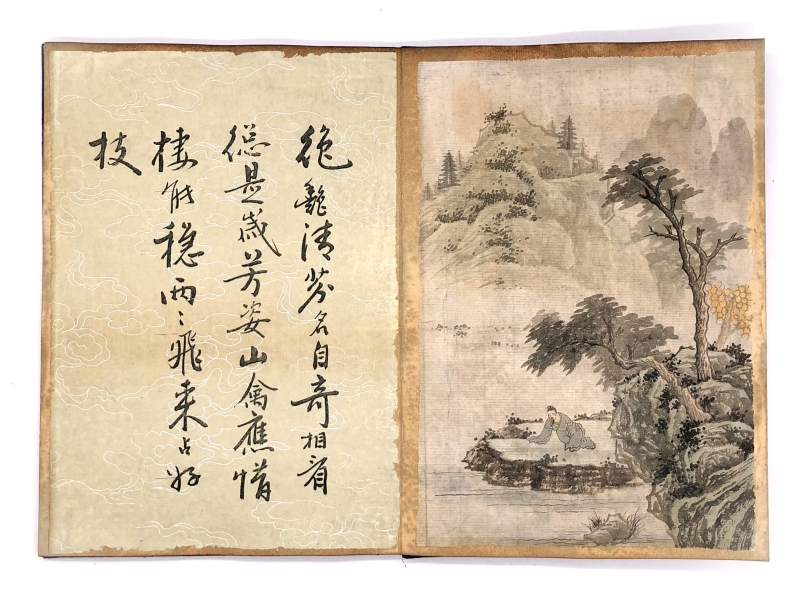 絶艷清芬名自奇相看
總是歲芳姿山禽應惜
棲能穩兩〻飛來占好
枝